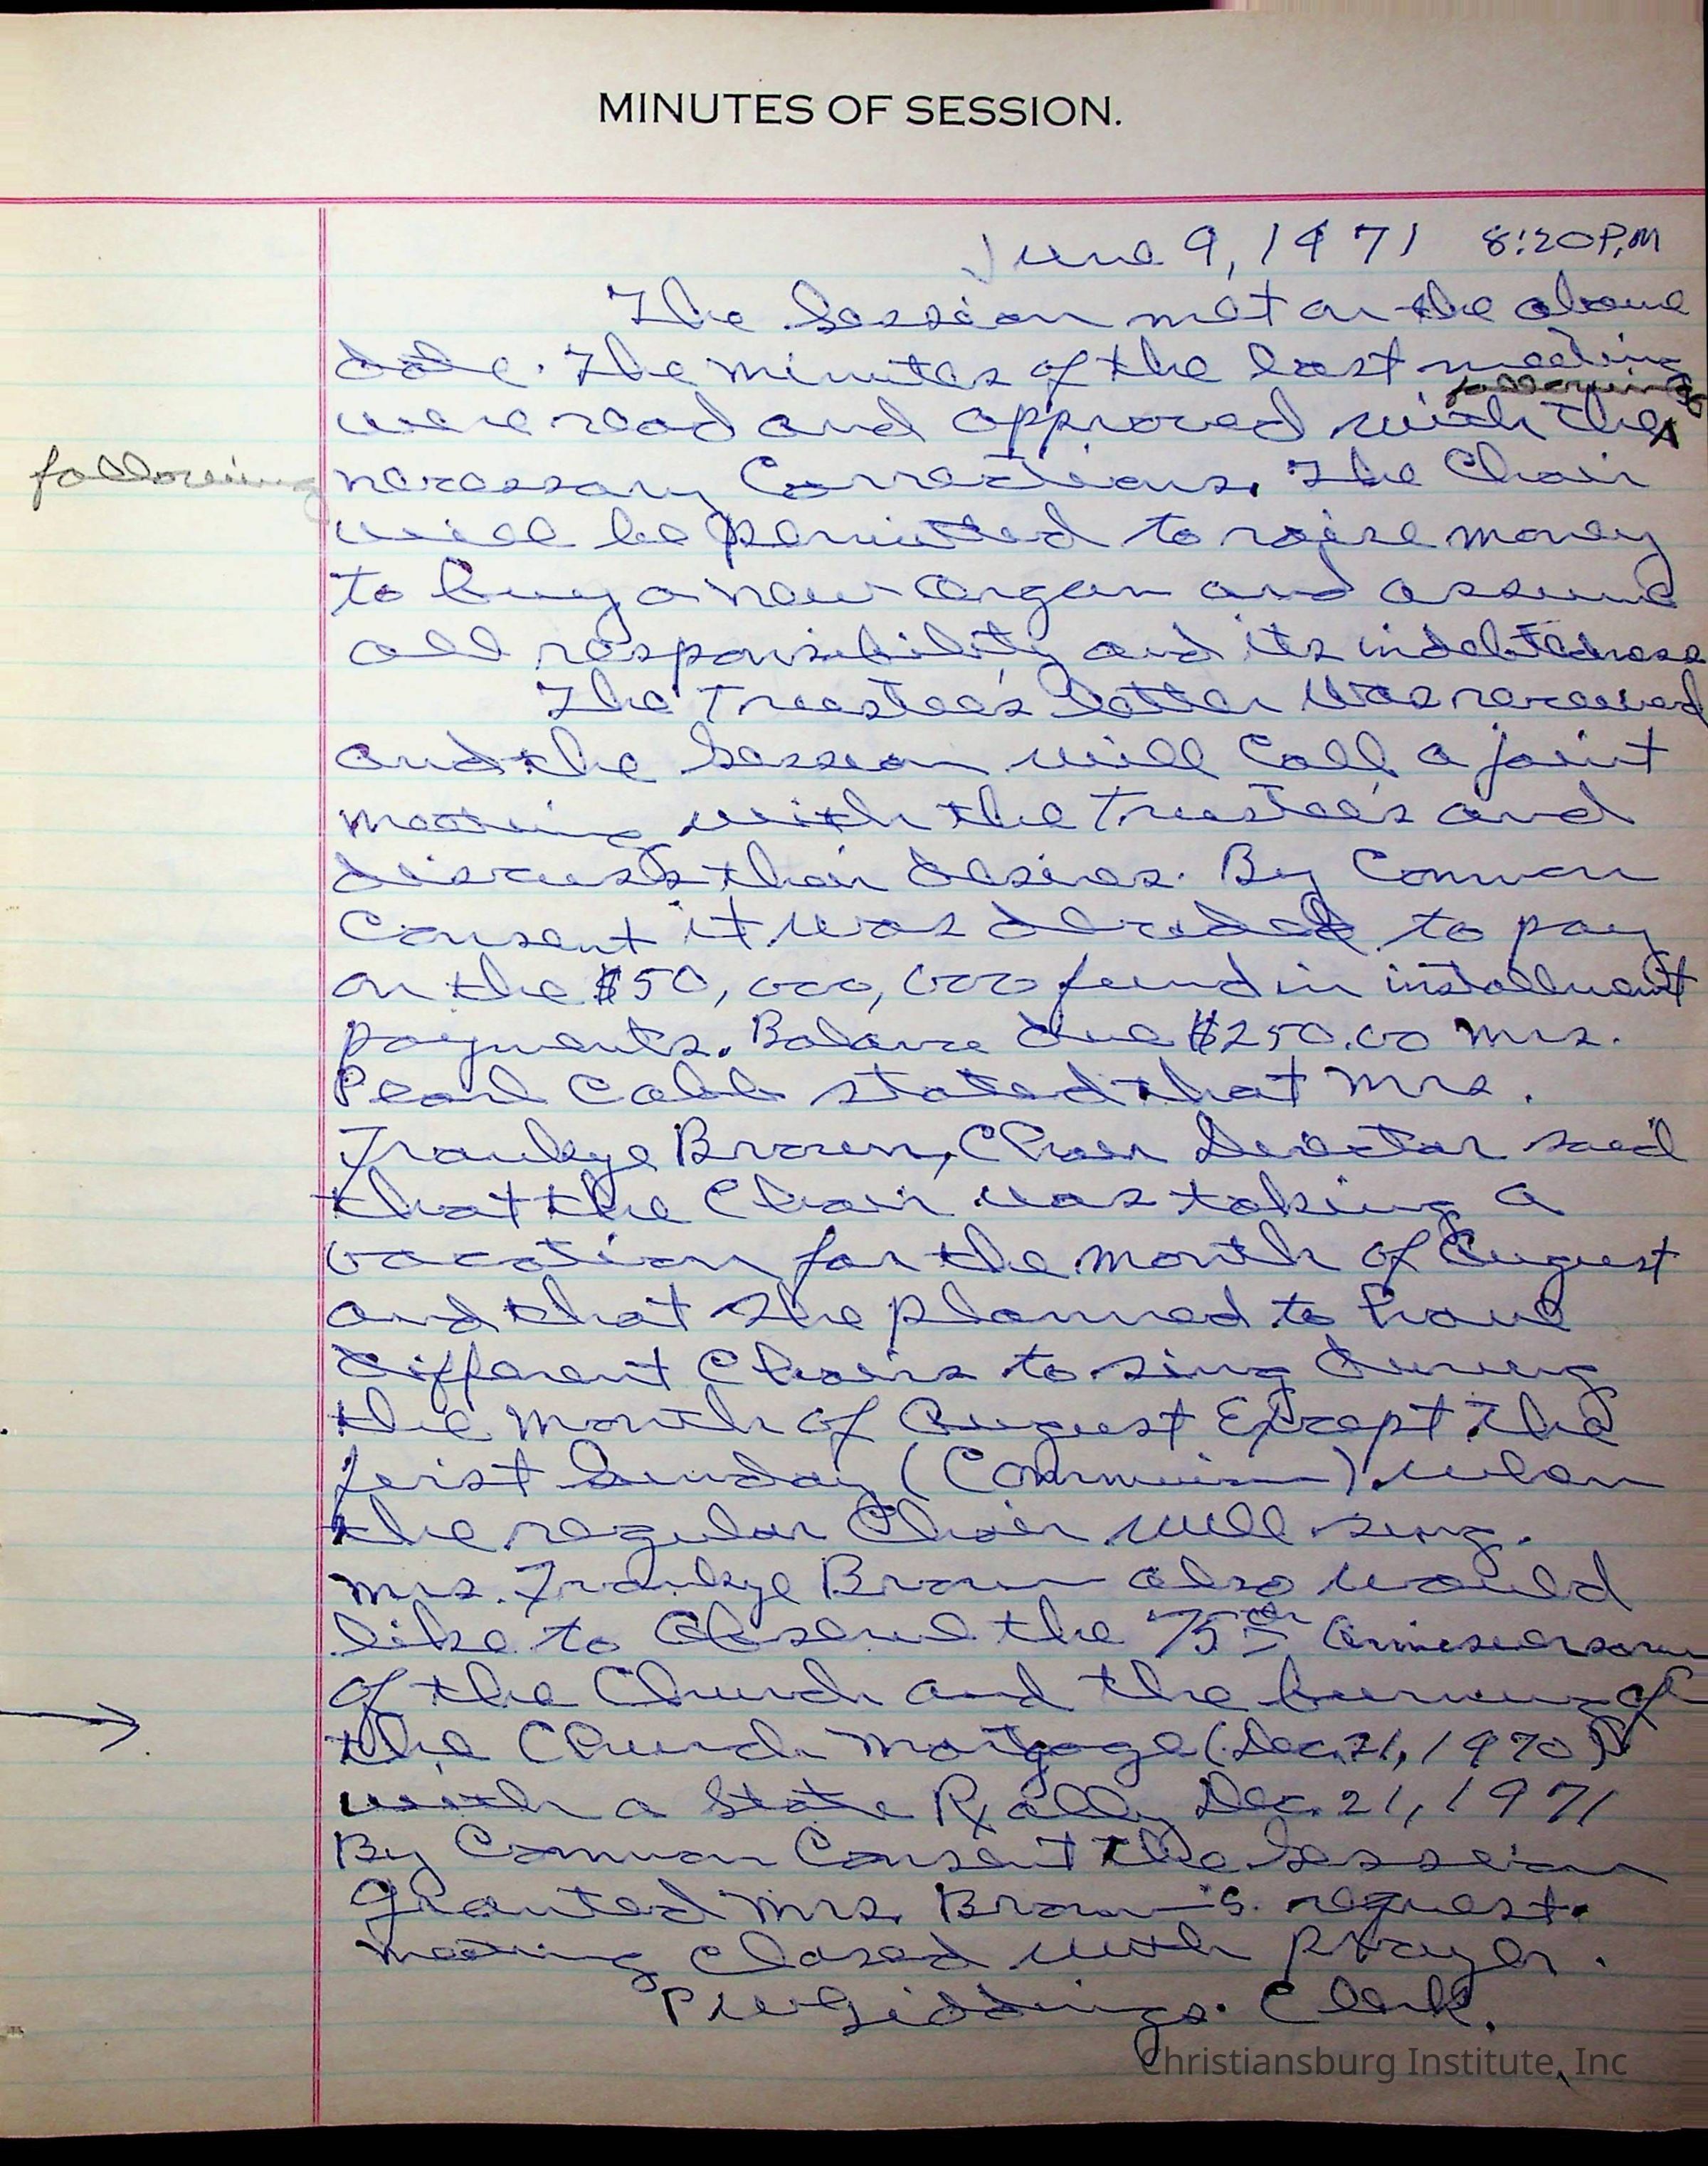 MINUTES OF SESSION.
June 9, 1971 8:20 P.M
The Session met on the above
date. The minutes of the last meeting
following
were read and approved with the ^
following necessary Corrections. The Choir
will be permitted to raise money
to buy a new organ and assume
all responsibility and its indebtedness
The Trustee's letter was received
and the Session will call a joint
meeting with the Trustee's and
discuss their desires. By Common
Consent it was decided to pay
on the $50,000,000 fund in installment
payments. Balance due $250.00 Mrs.
Pearl Cobb stated that Mrs.
Frankye Brown, Choir Director said
that the Choir was taking a
vacation for the month of August
and that she planned to have
different Choirs to sing during
the month of August Except the
first Sunday (Communion) when
the regular Choir will sing.
Mrs. Frankye Brown also would
like to Observe the 75th Anniversary
of the Church and the burning of
the Church Mortgage (Dec. 21, 1970)
with a State Rally Dec. 21, 1971
By Common Consent the Session
Granted Mrs. Brown's request.
Meeting closed with prayer.
P W Giddings. Clerk.
Christiansburg Institute, Inc